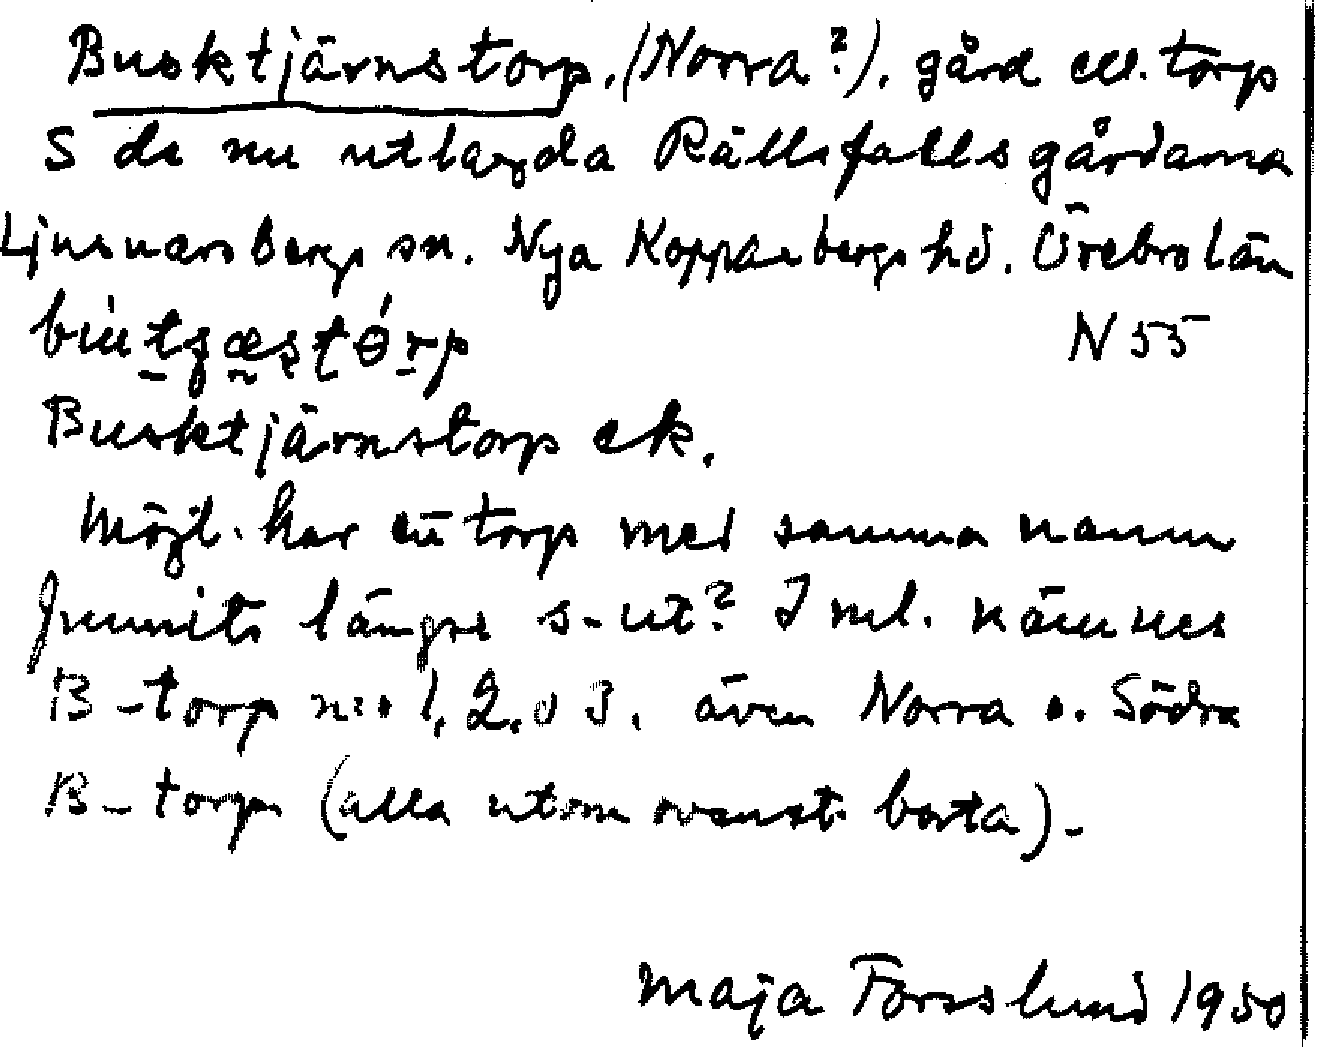 Busktjärnstorp, (Norra?). gård ell. torp
S de nu utlagda Rällsfallsgårdarna
Ljusnarsbergs sn. Nya Kopparbergs hd. Örebro län
N 55
Busktjärnstorp ek.
Möjl. har ett torp med samma namn
funnits längre s-ut? I ml. nämnes
B-torp n:o 1, 2, o 3, även Norra o. Södra
B-torp (alla utom ovanst. borta).
Maja Forsslund 1950